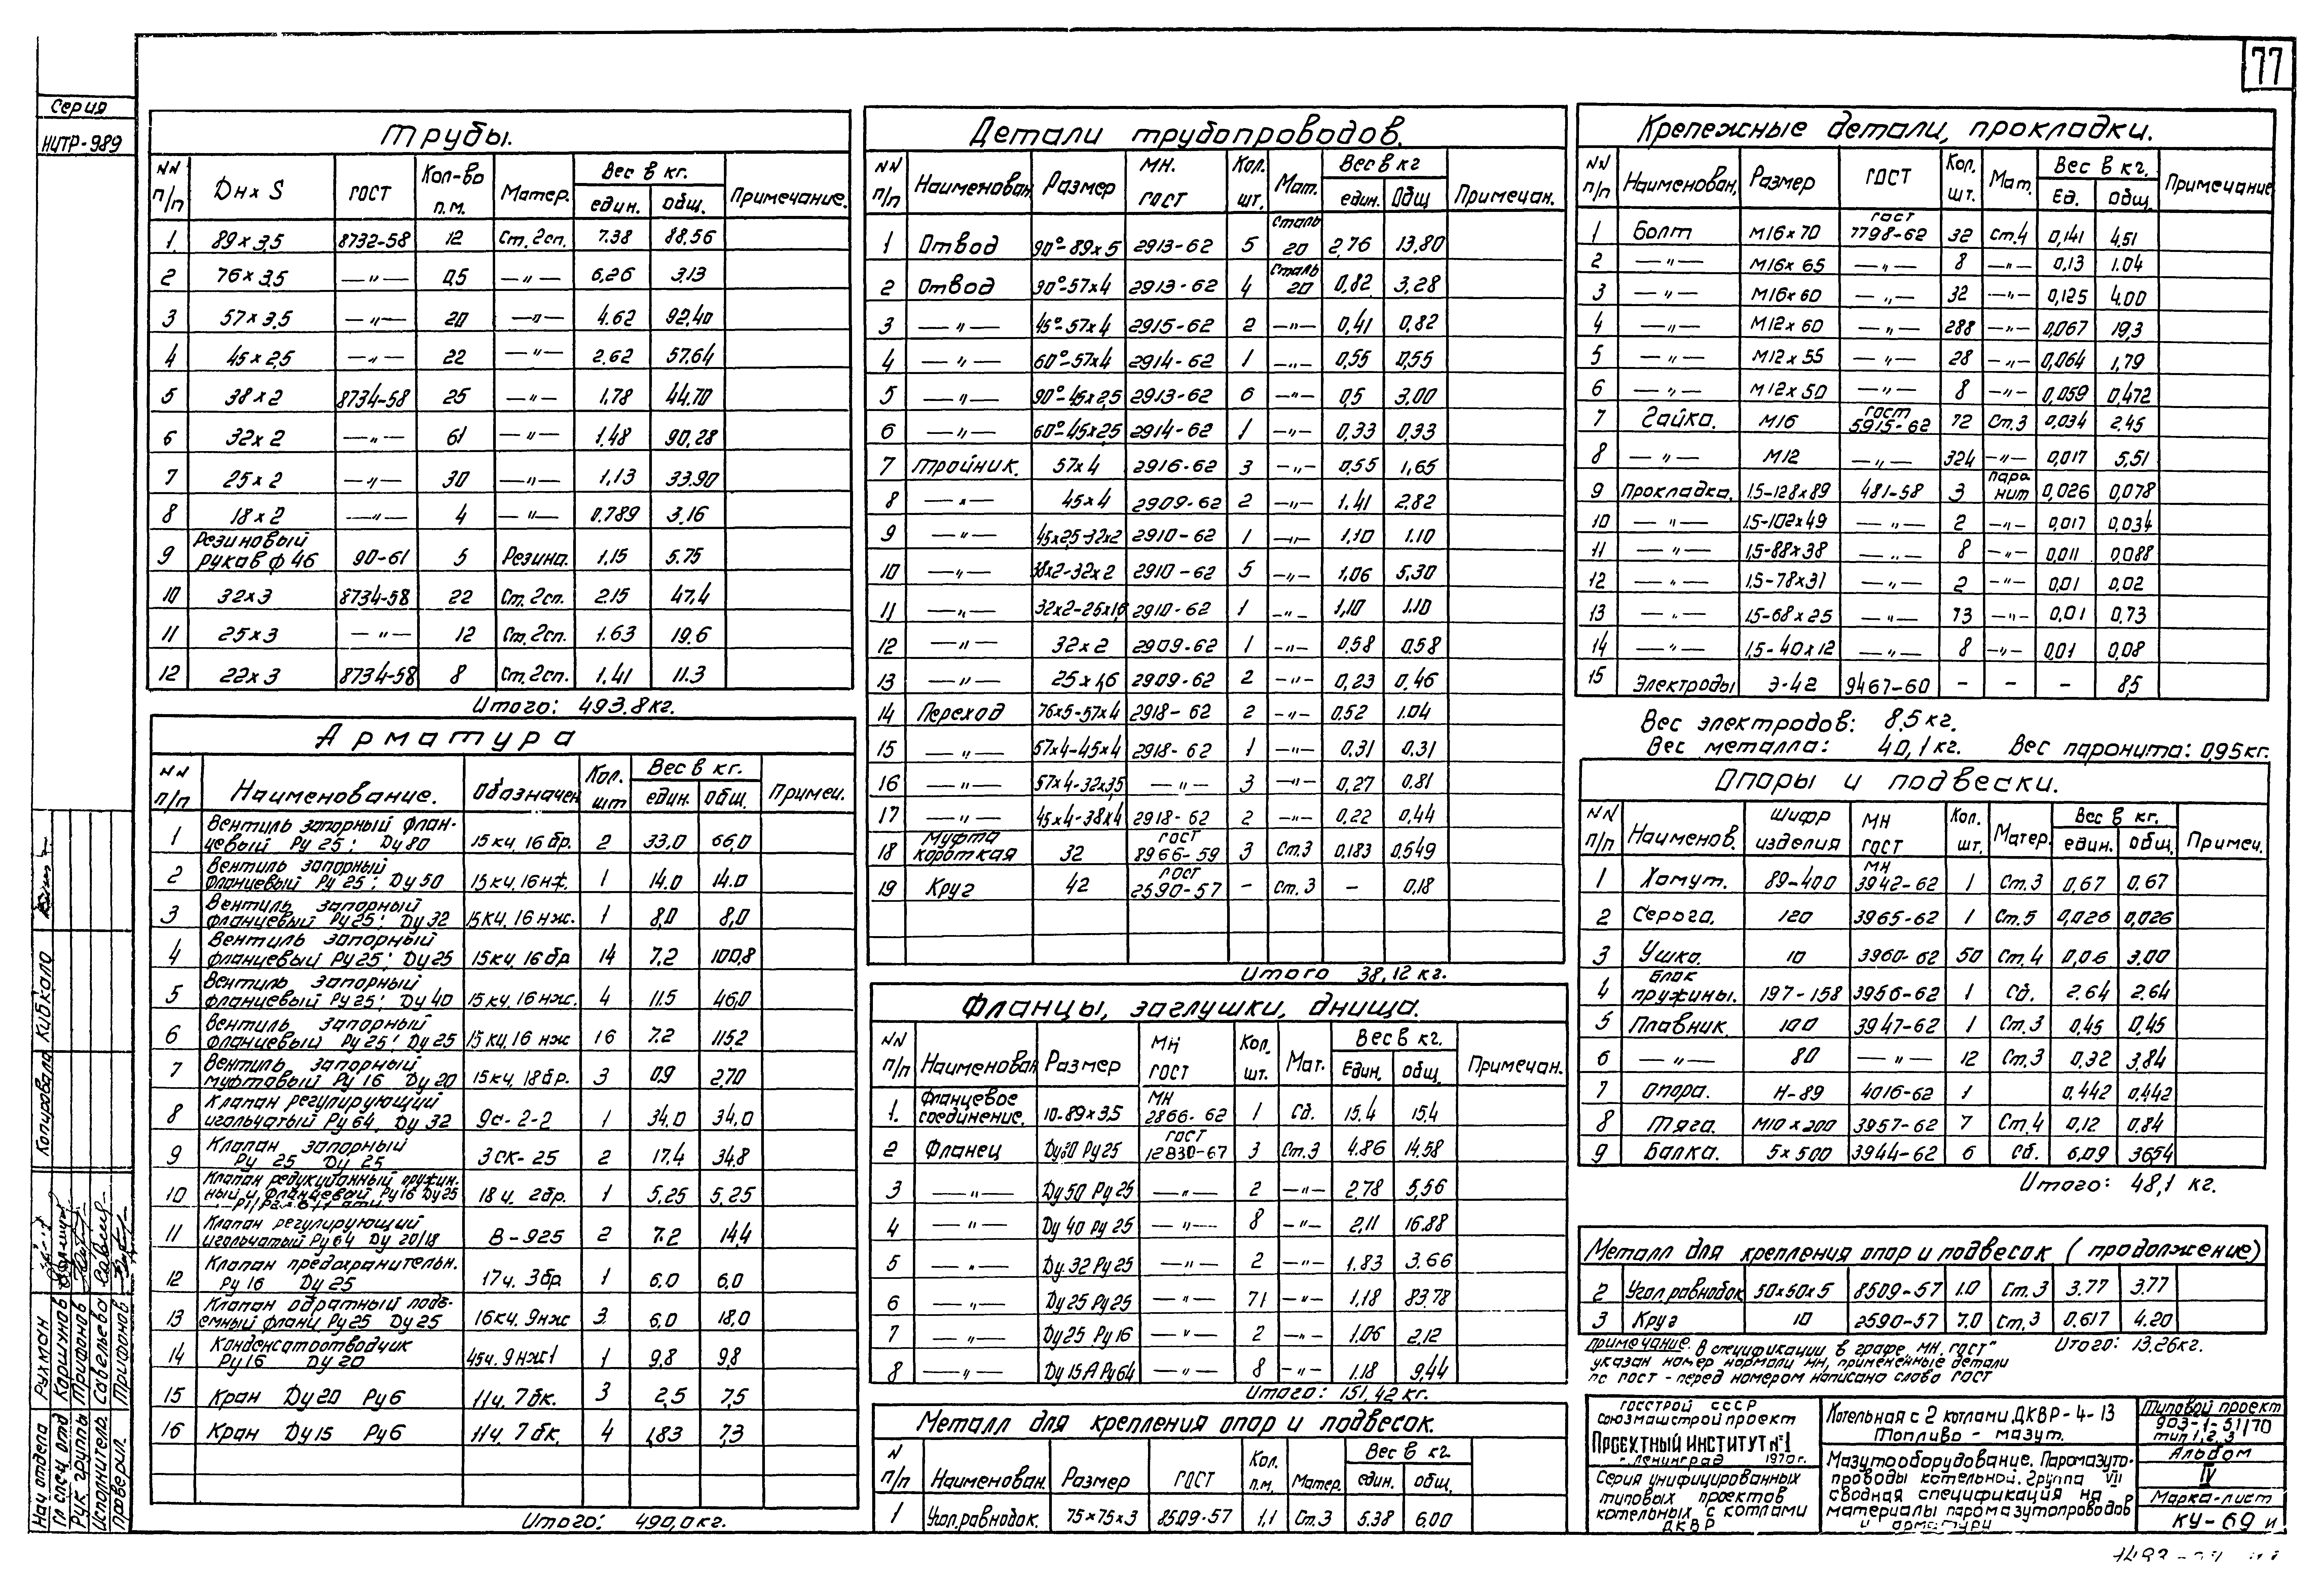 77
Серия
НИТР-989
Трубы.
NN п/п Dн x S ГОСТ Кол-во п.м. Матер. Вес в кг. един. общ. Примечание.
1. 89x3,5 8732-58 12 Ст.2сп. 7.38 88.56
2 76x3,5 —"— 0,5 —"— 6,26 3.13
3 57x3,5 —"— 20 —"— 4.62 92.40
4 45x2,5 —"— 22 —"— 2.62 57.64
5 38x2 8734-58 25 —"— 1.78 44.70
6 32x2 —"— 61 —"— 1.48 90,28
7 25x2 —"— 30 —"— 1,13 33.90
8 18x2 —"— 4 —"— 0.789 3.16
9 Резиновый рукав ф 46 90-61 5 Резина. 1,15 5.75
10 32x3 8734-58 22 Ст.2сп. 2.15 47.4
11 25x3 —"— 12 Ст.2сп. 1.63 19.6
12 22x3 8734-58 8 Ст.2сп. 1.41 11.3
Итого: 493.8кг.
Арматура
NN п/п Наименование. Обозначен Кол. шт Вес в кг. един. общ. Примеч.
1 Вентиль запорный фланцевый Ру 25; Dу 80 15кч.16бр. 2 33,0 66,0
2 Вентиль запорный фланцевый Ру 25; Dу 50 15кч.16нж. 1 14.0 14.0
3 Вентиль запорный фланцевый Ру 25; Dу 32 15кч.16нж. 1 8,0 8,0
4 Вентиль запорный фланцевый Ру 25; Dу 25 15кч.16бр 14 7.2 100,8
5 Вентиль запорный фланцевый Ру 25; Dу 40 15кч.16нж. 4 11.5 46,0
6 Вентиль запорный фланцевый Ру 25; Dу 25 15кч.16нж 16 7.2 115,2
7 Вентиль запорный муфтовый Ру 16 Dу 20 15кч.18бр. 3 0,9 2,70
8 Клапан регулирующий игольчатый Ру 64, Dу 32 9с-2-2 1 34,0 34,0
9 Клапан запорный Ру 25 Dу 25 ЗСК-25 2 17.4 34,8
10 Клапан редукционный пружинный фланцевой Ру 16 Dу 25 18ч. 2бр. 1 5,25 5,25
11 Клапан регулирующий игольчатый Ру 64 Dу 20/18 В-925 2 7.2 14,4
12 Клапан предохранительн. Ру 16 Dу 25 17ч. 3бр 1 6.0 6,0
13 Клапан обратный подъемный фланц. Ру 25 Dу 25 16кч.9нж 3 6,0 18,0
14 Конденсатоотводчик Ру 16 Dу 20 45ч.9нж1 1 9,8 9,8
15 Кран Dу 20 Ру 6 11ч.7бк. 3 2,5 7,5
16 Кран Dу 15 Ру 6 11ч.7бк. 4 1,83 7,3
Итого: 490,0кг.
Детали трубопроводов.
NN п/п Наименован. Размер МН. ГОСТ Кол. шт. Мат. Вес в кг един. Общ Примечан.
1 Отвод 90°-89x5 2913-62 5 Сталь 20 2,76 13,80
2 Отвод 90°-57x4 2913-62 4 Сталь 20 0,82 3,28
3 —"— 45°-57x4 2915-62 2 —"— 0,41 0,82
4 —"— 60°-57x4 2914-62 1 —"— 0,55 0,55
5 —"— 90°-45x2,5 2913-62 6 —"— 0,5 3.00
6 —"— 60°-45x2,5 2914-62 1 —"— 0,33 0,33
7 Тройник. 57x4 2916-62 3 —"— 0,55 1,65
8 —"— 45x4 2909-62 2 —"— 1.41 2.82
9 —"— 45x2,5-32x2 2910-62 1 —"— 1,10 1.10
10 —"— 38x2-32x2 2910-62 5 —"— 1,06 5,30
11 —"— 32x2-25x1,6 2910-62 1 —"— 1,10 1.10
12 —"— 32x2 2909-62 1 —"— 0,58 0,58
13 —"— 25x1,6 2909-62 2 —"— 0,23 0,46
14 Переход 76x5-57x4 2918-62 2 —"— 0.52 1.04
15 —"— 57x4-45x4 2918-62 1 —"— 0.31 0.31
16 —"— 57x4-32x3,5 —"— 3 —"— 0,27 0,81
17 —"— 45x4-38x4 2918-62 2 —"— 0,22 0,44
18 Муфта короткая 32 ГОСТ 8966-59 3 Ст.3 0.183 0.549
19 Круг 42 ГОСТ 2590-57 - Ст.3 - 0,18
Итого 38,12 кг.
Фланцы, заглушки, днища.
NN п/п Наименован Размер МН ГОСТ Кол. шт. Мат. Вес в кг. Един. общ. Примечан.
1. Фланцевое соединение. 10-89x3,5 МН 2866-62 1 Сб. 15.4 15.4
2 Фланец Dу80 Ру 25 ГОСТ 12830-67 3 Ст.3 4.86 14.58
3 —"— Dу 50 Ру 25 —"— 2 —"— 2,78 5,56
4 —"— Dу 40 Ру 25 —"— 8 —"— 2,11 16.88
5 —"— Dу 32 Ру 25 —"— 2 —"— 1.83 3.66
6 —"— Dу 25 Ру 25 —"— 71 —"— 1,18 83.78
7 —"— Dу 25 Ру 16 —"— 2 —"— 1.06 2.12
8 —"— Dу 15А Ру 64 —"— 8 —"— 1.18 9,44
Итого: 151,42 кг.
Металл для крепления опор и подвесок.
N п/п Наименован. Размер ГОСТ Кол. п.м. Матер. Вес в кг един. общ.
1 Угол.равнобок. 75x75x3 8509-57 1,1 Ст.3 5.38 6.00
Крепежные детали, прокладки.
NN п/п Наименован. Размер ГОСТ Кол. шт. Мат. Вес в кг. Ед. Общ. Примечание
1 Болт М16x70 ГОСТ 7798-62 32 Ст.4 0,141 4,51
2 —"— М16x65 —"— 8 —"— 0,13 1.04
3 —"— М16x60 —"— 32 —"— 0,125 4.00
4 —"— М12x60 —"— 288 —"— 0,067 19,3
5 —"— М12x55 —"— 28 —"— 0,064 1,79
6 —"— М12x50 —"— 8 —"— 0,059 0,472
7 Гайка. М16 ГОСТ 5915-62 72 Ст.3 0,034 2.45
8 —"— М12 —"— 324 —"— 0,017 5,51
9 Прокладка. 1,5-128x89 481-58 3 паронит 0,026 0,078
10 —"— 1,5-102x49 —"— 2 —"— 0,017 0,034
11 —"— 1,5-88x38 —"— 8 —"— 0,011 0,088
12 —"— 1,5-78x31 —"— 2 —"— 0,01 0,02
13 —"— 1,5-68x25 —"— 73 —"— 0,01 0,73
14 —"— 1,5-40x12 —"— 8 —"— 0,01 0,08
15 Электроды Э-42 9467-60 - - - 8,5
Вес электродов: 8.5кг.
Вес металла: 40,1 кг. Вес паронита: 0,95кг.
Опоры и подвески.
NN п/п Наименов. Шифр изделия МН ГОСТ Кол. шт. Матер. Вес в кг. един. общ. Примеч.
1 Хомут. 89-400 МН 3942-62 1 Ст.3 0,67 0.67
2 Серьга. 120 3965-62 1 Ст.5 0,026 0,026
3 Ушко. 10 3960-62 50 Ст.4 0,06 3.00
4 Блок пружины. 197-158 3956-62 1 Сб. 2.64 2.64
5 Плавник. 100 3947-62 1 Ст.3 0,45 0,45
6 —"— 80 —"— 12 Ст.3 0.32 3,84
7 Опора. Н-89 4016-62 1 0,442 0,442
8 Тяга. М10x200 3957-62 7 Ст.4 0,12 0.84
9 Балка. 5x500 3944-62 6 Сб. 6,09 36,54
Итого: 48,1 кг.
Металл для крепления опор и подвесок (продолжение)
2 Угол.равнобок 50x50x5 8509-57 1.0 Ст.3 3.77 3.77
3 Круг 10 2590-57 7.0 Ст.3 0.617 4.20
Итого: 13.26кг.
Примечание. В спецификации в графе „МН, ГОСТ"
указан номер нормали МН, примененные детали
по ГОСТ - перед номером написано слово ГОСТ
Госстрой СССР
Союзмашстройпроект
Проектный институт №1
г. Ленинград 1970г.
Серия унифицированных
типовых проектов
котельных с котлами
ДКВР
Котельная с 2 котлами ДКВР-4-13
Топливо - мазут.
Мазутооборудование. Паромазуто-
проводы котельной. Группа VII
Сводная спецификация на
материалы паромазутопроводов
и арматуры
Типовой проект
903-1-51/70
тип 1,2,3
Альбом
IV
Марка-лист
КУ-69 и
Копировала Кибкало
Нач отдела Рухман
Гл спец отд Коршунов
Рук. группы Трифонов
Исполнитель Савельева
Проверил. Трифонов